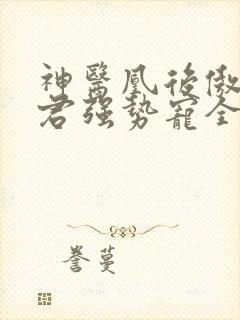 神醫鳳後傲
君強勢寵全
誉蔓